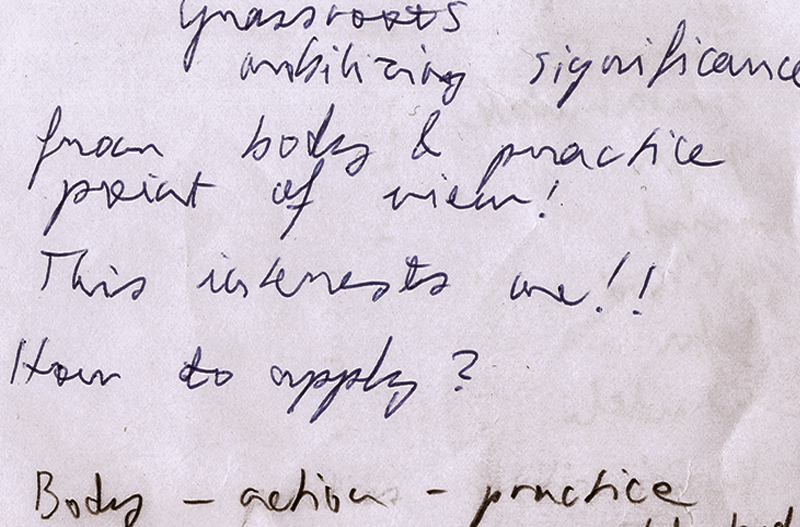 Grassroots
mobilizing significance
from body & practice
point of view!
This interests me!!
How to apply?
Body – action – practice